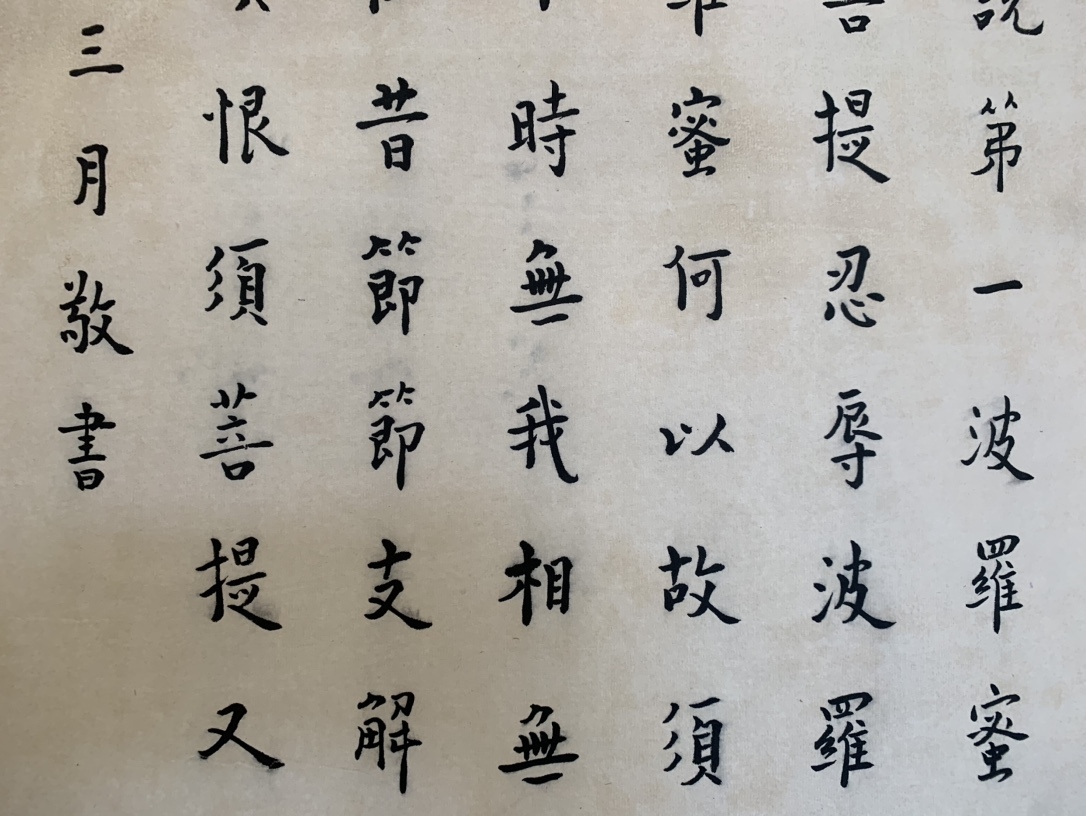 說第一波羅蜜
菩提忍辱波羅
蜜何以故須
時無我相無
昔節節支解
恨須菩提又
三月敬書